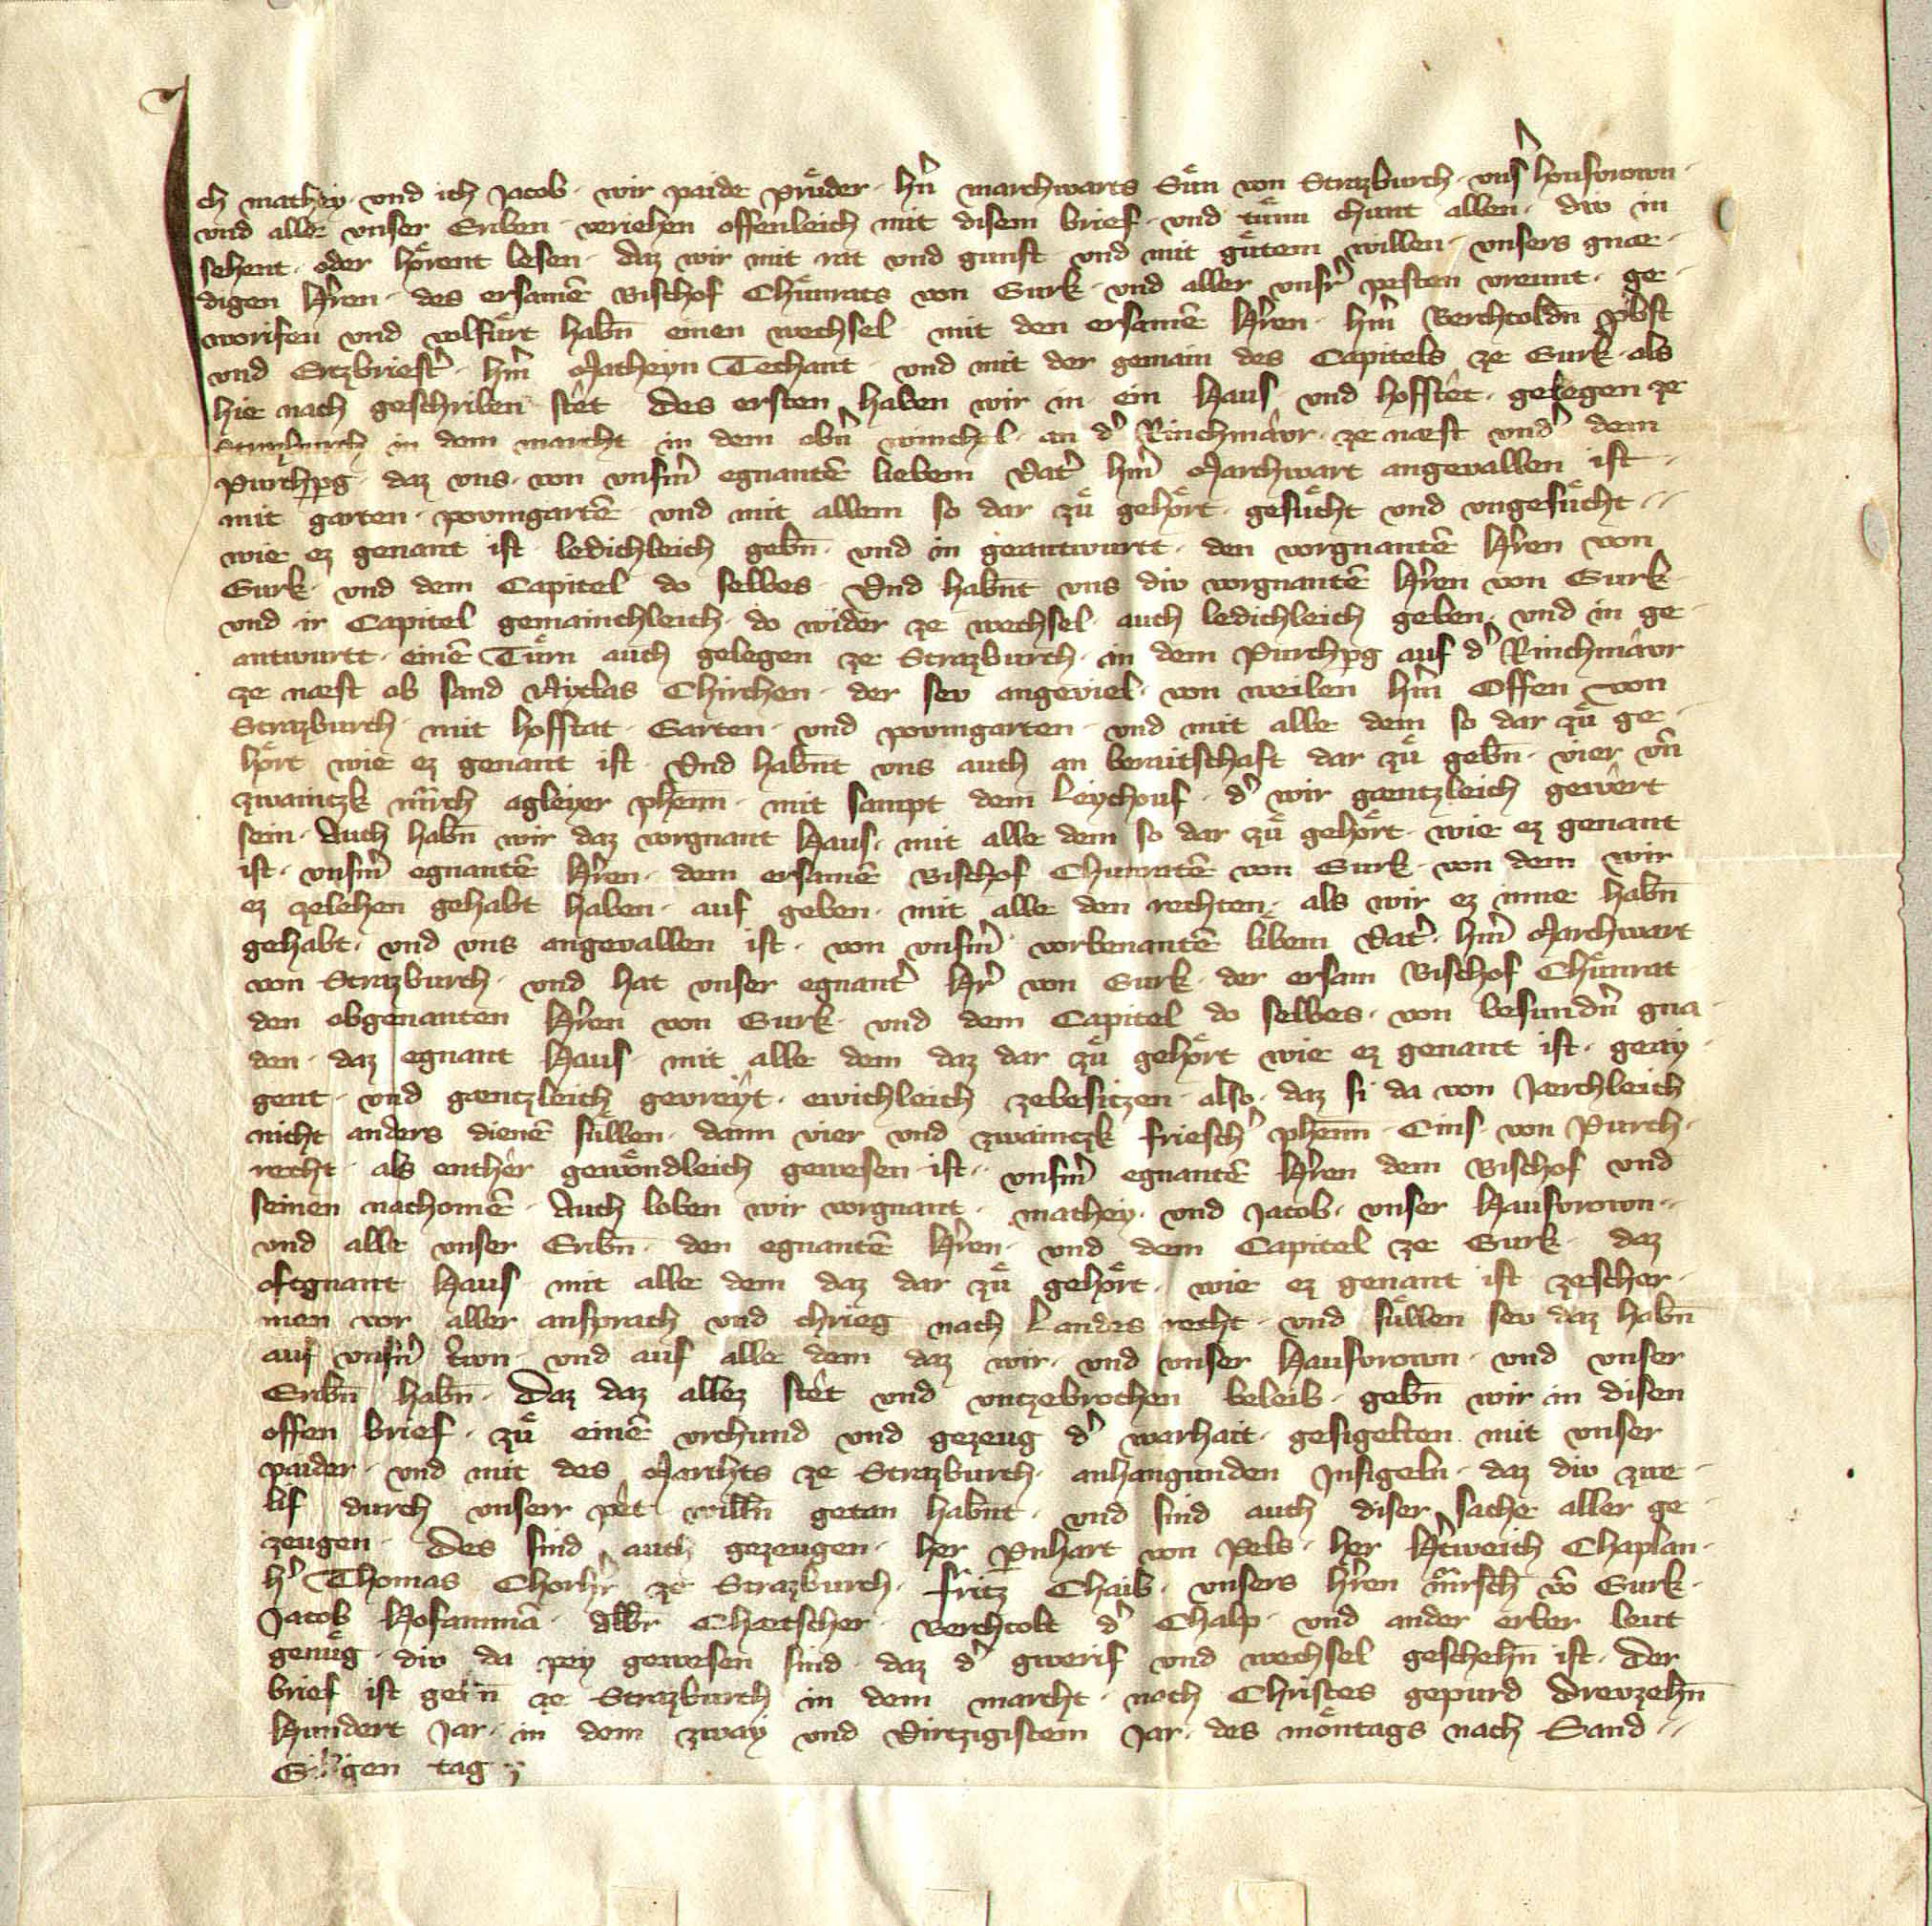 Ich mathey · vnd ich Jacob · wir paide pruͤder · hn̄ marchwarts Suͤn von Strazburch · vnsˀ housvrown ·
vnd alle vnser Eriben · veriehen offenleich mit disem brief · vnd tuͤnn chunt allen · div in
sehent · oder hoͤrent lesen · daz wir mit rat vnd gunst · vnd mit guͤtem willen · vnsers gnae ·
digen hˀren · des ersamē Bischof Chuͤnrats von Gurk · vnd aller vnsrˀ pesten vreunt · ge ·
worifen vnd volfuͤrt habn̄ einen wechsel · mit den ersamē hˀren · hˀrn Berchtoldn̄ pˀbst
vnd Ertzbriestˀ · hˀrn Matheyn Techant · vnd mit der gemain des Capitels ze Gurk · als
hie nach geschriben stêt · Des ersten haben wir in ein Haus vnd hofstêt · gelegen ze
Strazburch in dem marcht in dem obn̄ winchel · an dˀ Rinchmâvr · ze naest vndˀ dem
Purchpˀg · daz vns · von vnsmˀ egnantē liebem Vatˀ hˀrn Marchwart angevallen ist ·
mit garten · povmgartē · vnd mit allem so dar zuͤ gehoͤrt · gesuͤcht vnd vngesuͤcht ·
wie ez genant ist · ledichleich gebn̄ · vnd in geantwurtt · den vorgnantē hˀren von
Gurk · vnd dem Capitel do selbes · Vnd habn̄t vns div vorgnantē hˀren von Gurk ·
vnd ir Capitel gemainchleich · do wider ze wechsel · auch ledichleich geben · vnd in ge ·
antwurtt · einē Tuͤrn auch gelegen ze Strazburch · in dem Purchpˀg auf dˀ Rinchmâvr
ze naest ob sand Nyclas Chirchen · der sev angeviel · von weilen hˀrn Offen von
Strazburch · mit hofstat · Garten · vnd povmgarten · vnd mit alle dem so dar zuͤ ge ·
hoͤrt wie ez genant ist · Vnd habn̄t vns auch an beraitschaft dar zuͤ gebn̄ · vier vn̄
zwaintzk march agleyer phenn̄ · mit sampt dem Leychouf · dˀ wir gaentzleich gewêrt
sein · Auch habn̄ wir daz vorgnant Haus · mit alle dem so dar zuͤ gehoͤrt · wie ez genant
ist · vnsmˀ egnantē hˀren · dem ersamē Bischof Chunratē von Gurk · von dem wir
ez zelehen gehabt haben · auf geben · mit alle den rechten · als wir ez inne habn̄
gehabt · vnd vns angevallen ist · von vnsmˀ vorbenantē libem Vatˀ · hˀrn Marchwart
von Strazburch · vnd hat vnser egnantˀ hˀr von Gurk · der ersam Bischof Chuͤnrat
den obgenanten hˀren von Gurk · vnd dem Capitel do selbes · von besundn̄ gna ·
den · daz egnant Haus · mit alle dem daz dar zuͤ gehoͤrt wie ez genant ist · geay ·
gent · vnd gaentzleich gevreyt · ewichleich zebesitzen · also · daz si da von Jaerchleich
nicht anders dienē suͤllen · dann vier vnd zwaintzk frieschˀ phenn̄ · Cins · von Purch ·
recht · als enther gewoͤndleich gewesen ist · vnsmˀ egnantē hˀren dem Bischof vnd
seinen nachomē · Auch loben wir vorgnant · mathey · vnd Jacob · vnser Hausvrown ·
vnd alle vnser Eribn̄ · den egnantē hˀren · vnd dem Capitel ze Gurk · daz
oftgnant Haus · mit alle dem daz dar zuͤ gehoͤrt · wie ez genant ist zescher ·
men vor aller ansprach vnd chrieg nach Landes recht · vnd suͤllen sev daz habn̄
auf vnsn̄ trwn · vnd auf alle dem daz wir · vnd vnser Hausvrown · vnd vnser
Eribn̄ habn̄ · Daz daz allez stêt vnd vntzebrochen beleib · gebn̄ wir in disen
offen brief · zuͤ einē vrchund vnd gezeug dˀ warhait · gesigelten mit vnser
paider · vnd mit des Marchts ze Strazburch · anhangunden Insigeln · daz div zwe ·
lif durch vnserr pêt willn̄ getan habn̄t · vnd sind auch diser sache aller ge ·
zeugen · Des sind auch gezeugen · her Pˀnhart von Pels · her Hˀtweich Chaplan ·
hˀ Thomas Chorhˀr ze Strazburch · fritz Chaib · vnsers hˀren marsch̄ vō Gurk ·
Jacob Hosammā · Albˀr Chaetscher · Berchtolt dˀ Chalp · vnd ander erber leut
genuͤg · div da pey gewesen sind · daz dˀ gwerif vnd wechsel geschehn̄ ist · Der
brief ist gebn̄ ze Strazburch in dem marcht · nach Christes gepurd Drevzehn̄
Hundert Jar · in dem zway vnd Virtzigistem Jar · des moͤntags nach Sand ·
Giligen tag ·